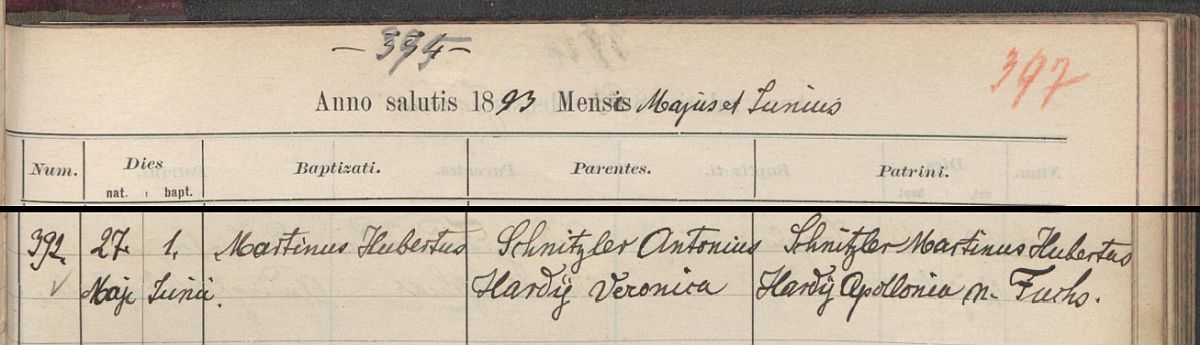 - 395 -
397
Anno salutis 1893 Mensis Majus et Junius
Num. Dies Baptizati. Parentes. Patrini.
nat. bapt.
392. 27. 1. Martinus Hubertus Schnitzler Antonius Schnitzler Martinus Hubertus
Maji Junii. Hardÿ Veronica Hardÿ Apollonia n. Fuchs.